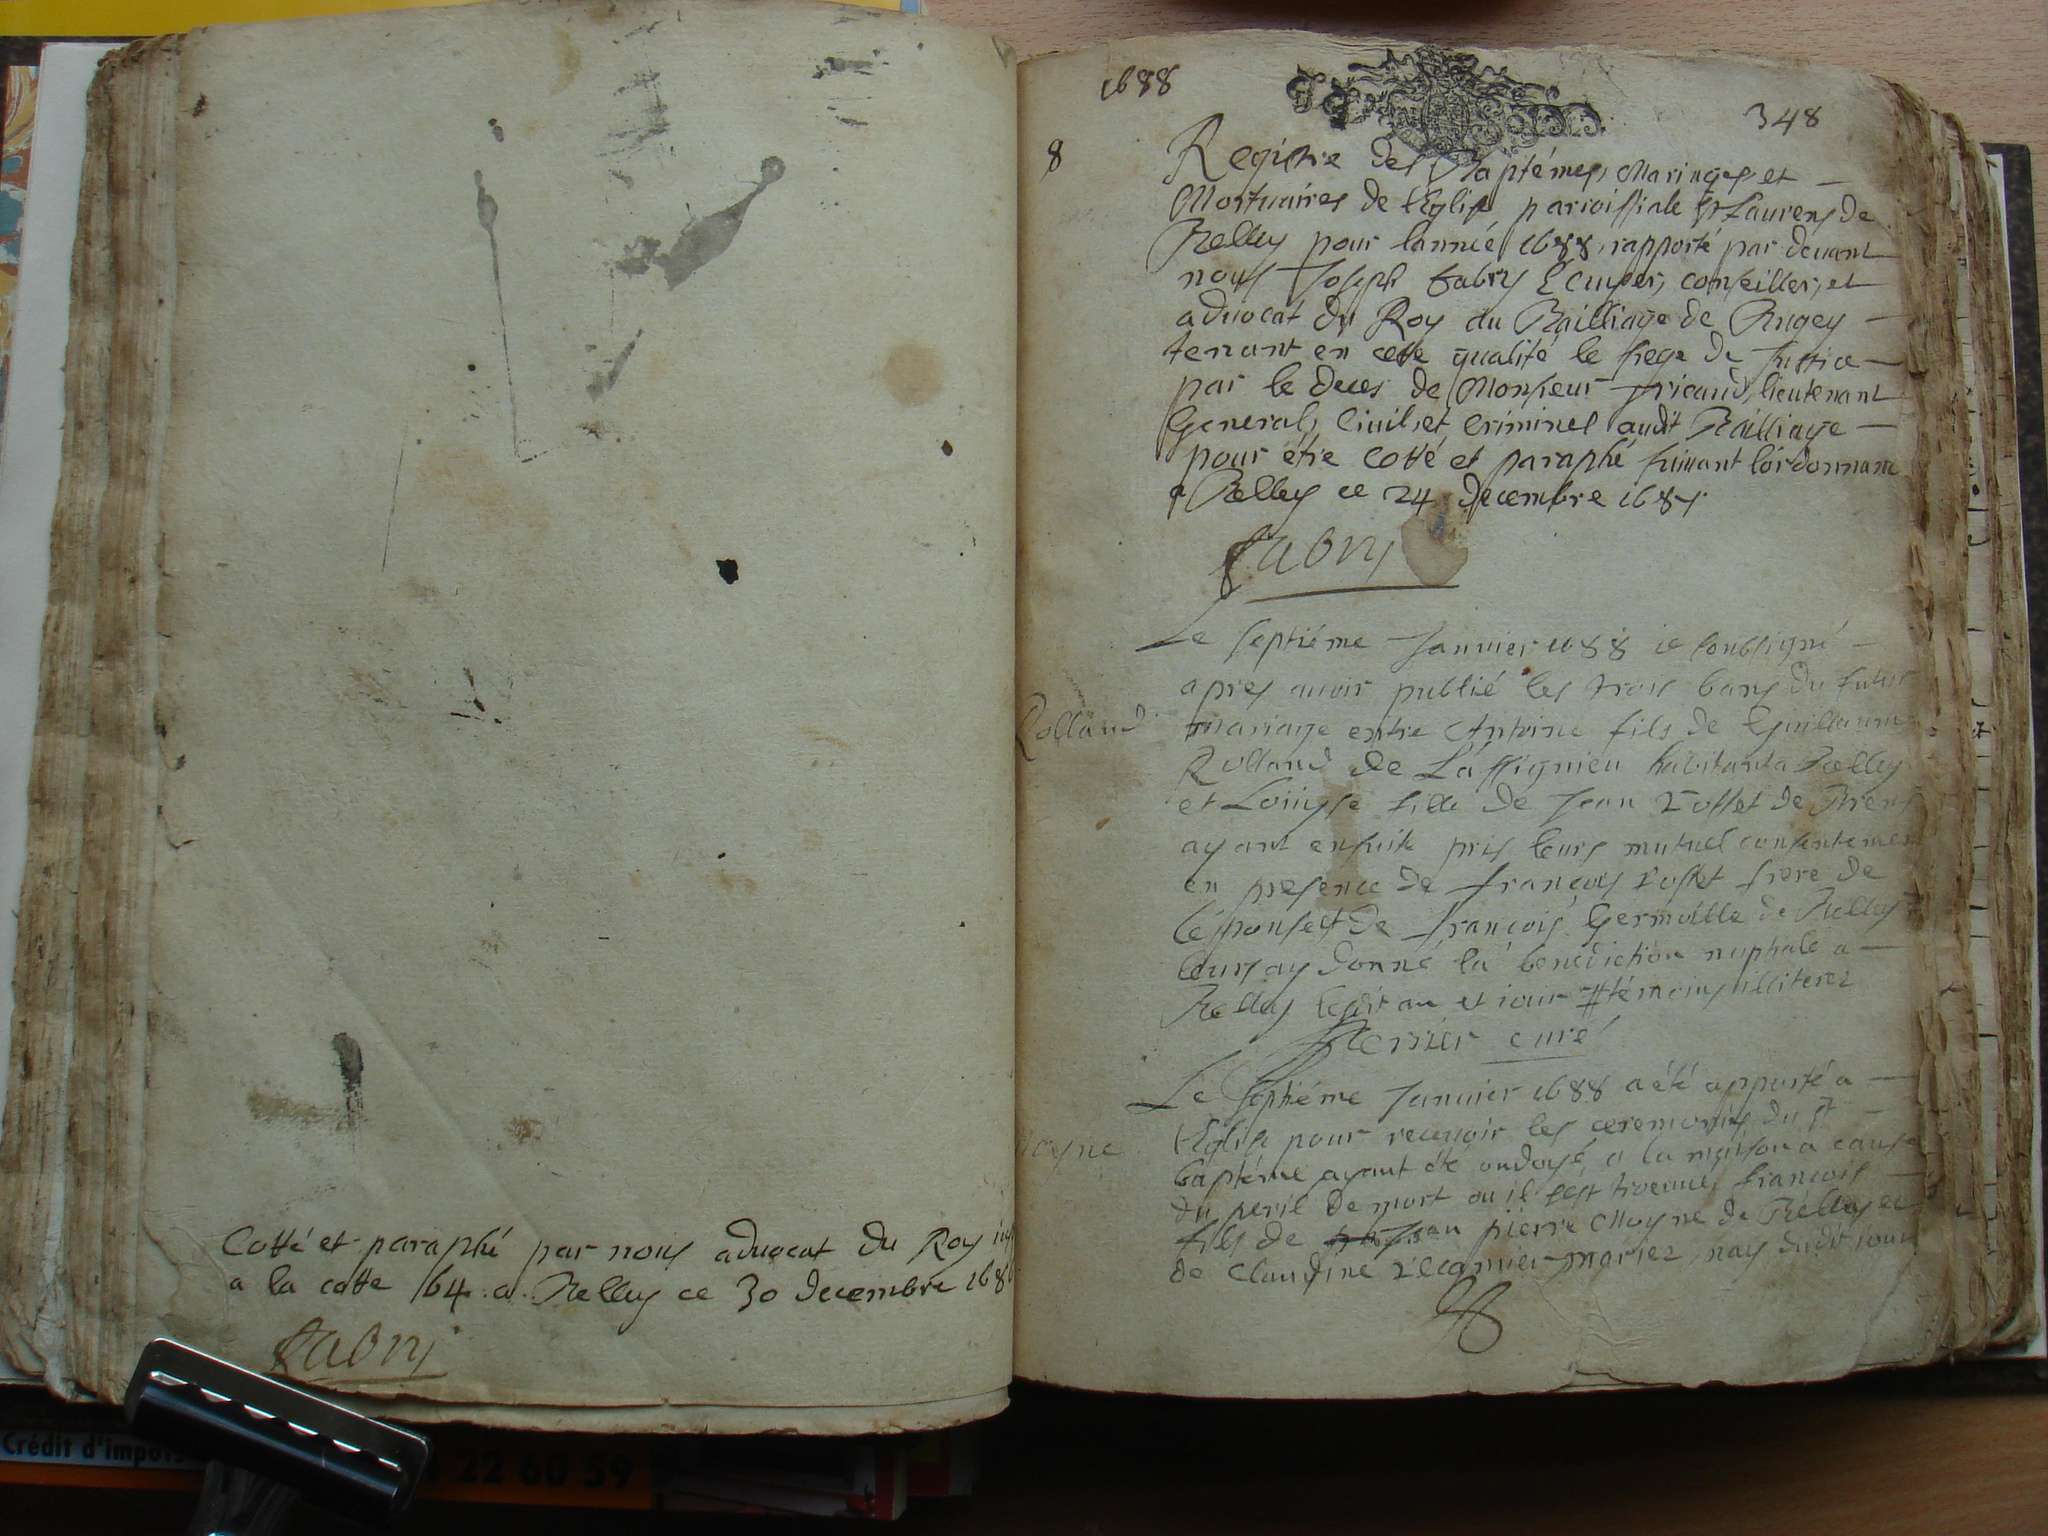 Cotté et paraphé par nous advocat du Roy
a la cotte 164 a Belley ce 30 decembre 168
Fabry
Crédit d'impôt
22 60 59
1688
348
8
Registre des Baptémes, Mariages et
Mortuaires de lEglise parroissiale St Laurens de
Belley pour lannée 1688, rapporté par devant
nous Joseph Fabry Ecuyer, conseiller, et
advocat du Roy au Bailliage de Bugey
tenant en cette qualité le siege de Justice
par le deces de Monsieur lieutenant
General, Civil, et Criminel audit Bailliage
pour étre Cotté et paraphé suivant lordonnance
a Belley ce 24 decembre 1687
Fabry
Le septiéme Janvier 1688 ie soubsigné
apres avoir publié les trois bans du futur
Rolland
mariage entre Antoine fils de Guillaume
Rolland de Lassignieu habitant a Belley
et Louyse fille de Jean Rosset de Brens
ayant ensuite pris leurs mutuel consentement
en presence de françois Rosset frere de
lépouse et de françois Germolle de Belley
leurs ay donné la benediction nuptiale a
Belley lesdit an et iour témoins illiterez
curé
Le septiéme Janvier 1688 a été apporté a
lEglise pour recevoir les ceremonies du st
Moyne
baptéme ayant été ondoyé a la maison a cause
du peril de mort ou il sest trouvué, françois
fils de Jean pierre Moyne de Belley et
de Claudine Recamier mariez, nay dudit iour